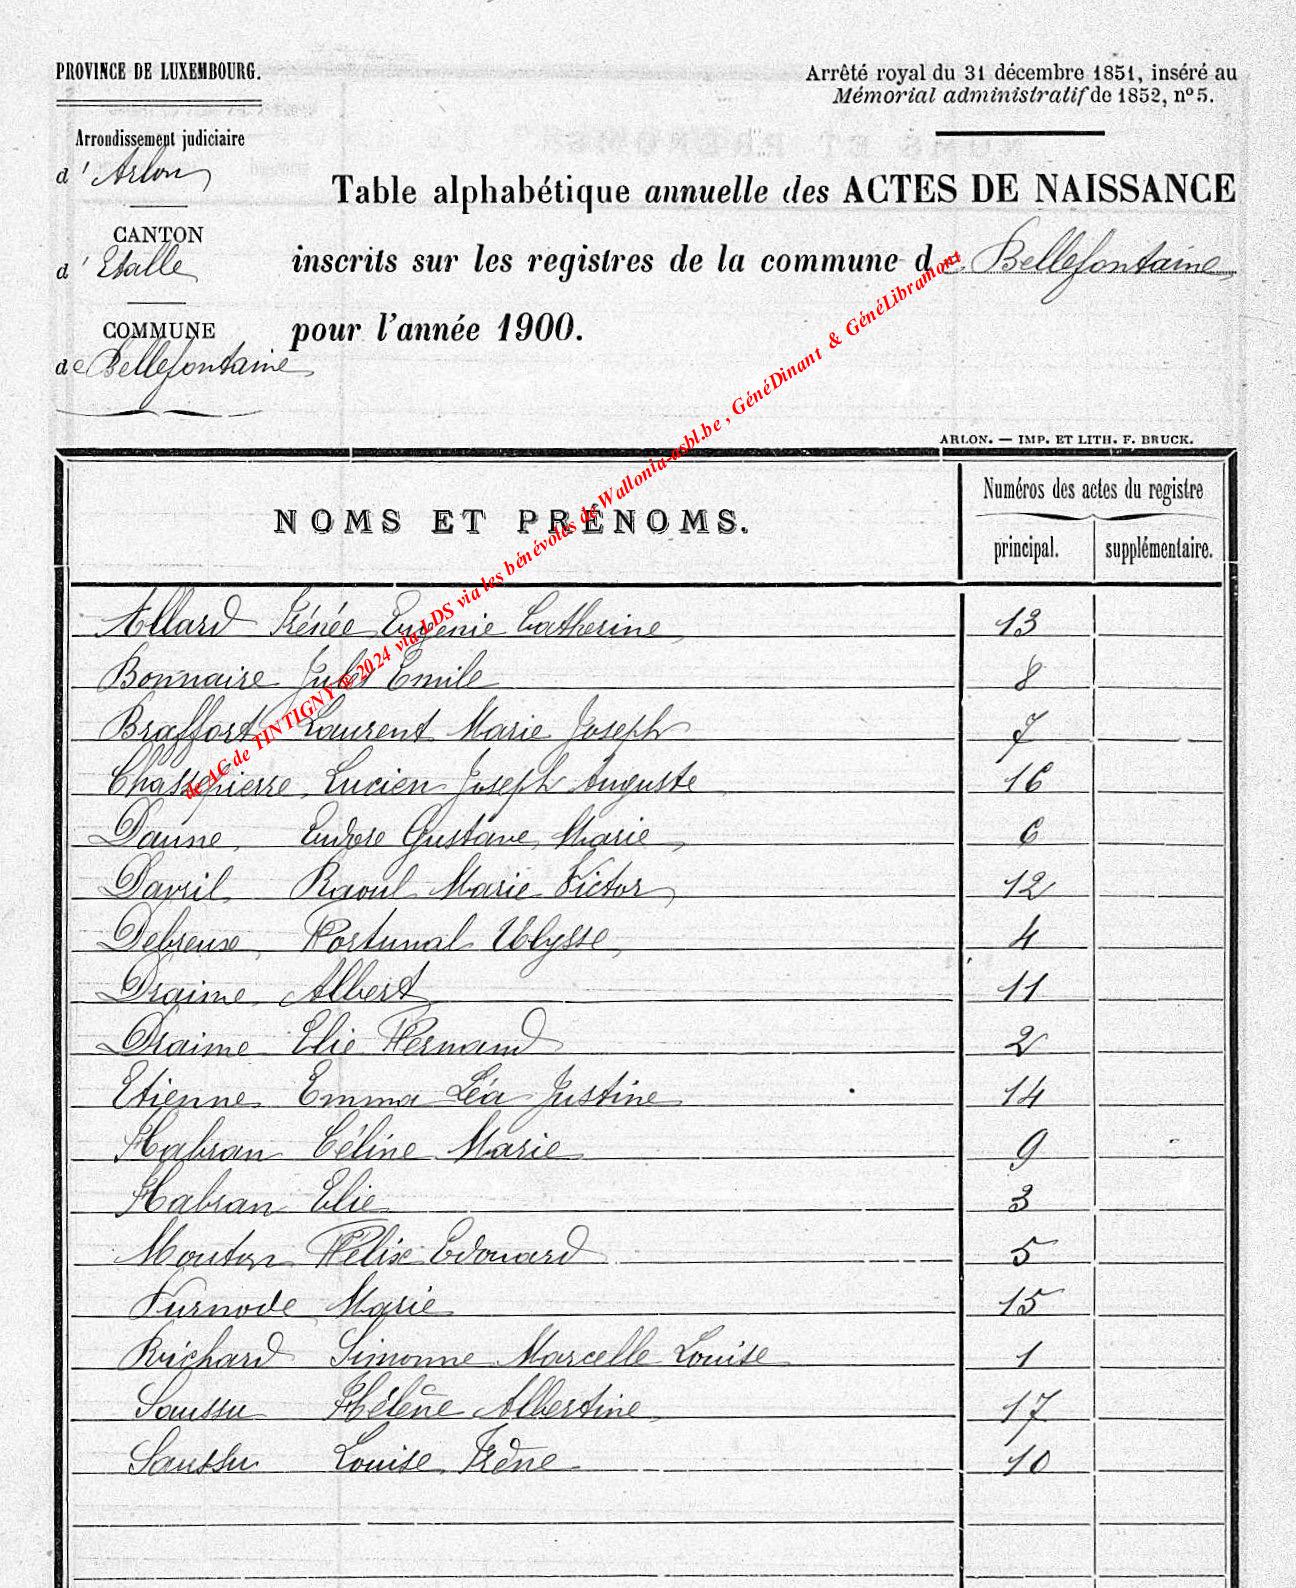 PROVINCE DE LUXEMBOURG.
Arrondissement judiciaire
d'Arlon
CANTON
d'Etalle
COMMUNE
de Bellefontaine
Arrêté royal du 31 décembre 1851, inséré au
Mémorial administratif de 1852, nº 5.
Table alphabétique annuelle des ACTES DE NAISSANCE
inscrits sur les registres de la commune de Bellefontaine
pour l'année 1900.
ARLON. — IMP. ET LITH. F. BRUCK.
de AC de TINTIGNY @2024 via LDS via les bénévoles de Wallonia-asbl.be , GénéDinant & GénéLibramont
NOMS ET PRÉNOMS.
Numéros des actes du registre
principal. supplémentaire.
Allard Irénée Eugenie Catherine 13
Bonnaire Jules Emile 8
Braffort Laurent Marie Joseph 7
Chassepierre Lucien Joseph Auguste 16
Daune, Gustave Marie 6
Davril Raoul Marie Victor 12
Debreux, Fortunal Ulysse, 4
Draime Albert 11
Draime Elie Fernand 2
Etienne Emma Léa Justine 14
Habran Céline Marie 9
Habran Elie 3
Mouton Félix Edouard 5
Purnode Marie 15
Richard Simonne Marcelle Louise 1
Saussu Hélène Albertine 17
Saussu Louise Irène 10